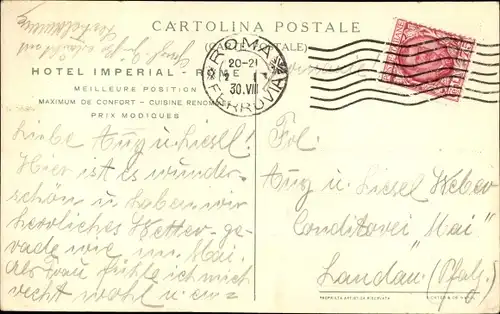 CARTOLINA POSTALE
(CARTE POSTALE)
HOTEL IMPERIAL - ROME
MEILLEURE POSITION
MAXIMUM DE CONFORT - CUISINE RENOM
PRIX MODIQUES
ROMA
20-21
30.VIII
FERROVIA
Liebe Aug u. Liesel!
Hier ist es wunder-
schön u. haben wir
herrliches Wetter, ge-
rade wie im Mai.
Als Frau fühle ich mich
recht wohl u.
Frl.
Aug u. Liesel Weber
Conditorei "Mai"
Landau (Pfalz)